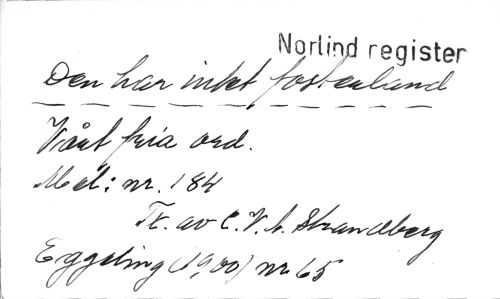 Norlind register
Den har intet fosterland
Vårt fria ord.
Mel: nr. 184
Tr. av C. V. A. Strandberg
Eggeling (1900) nr 65